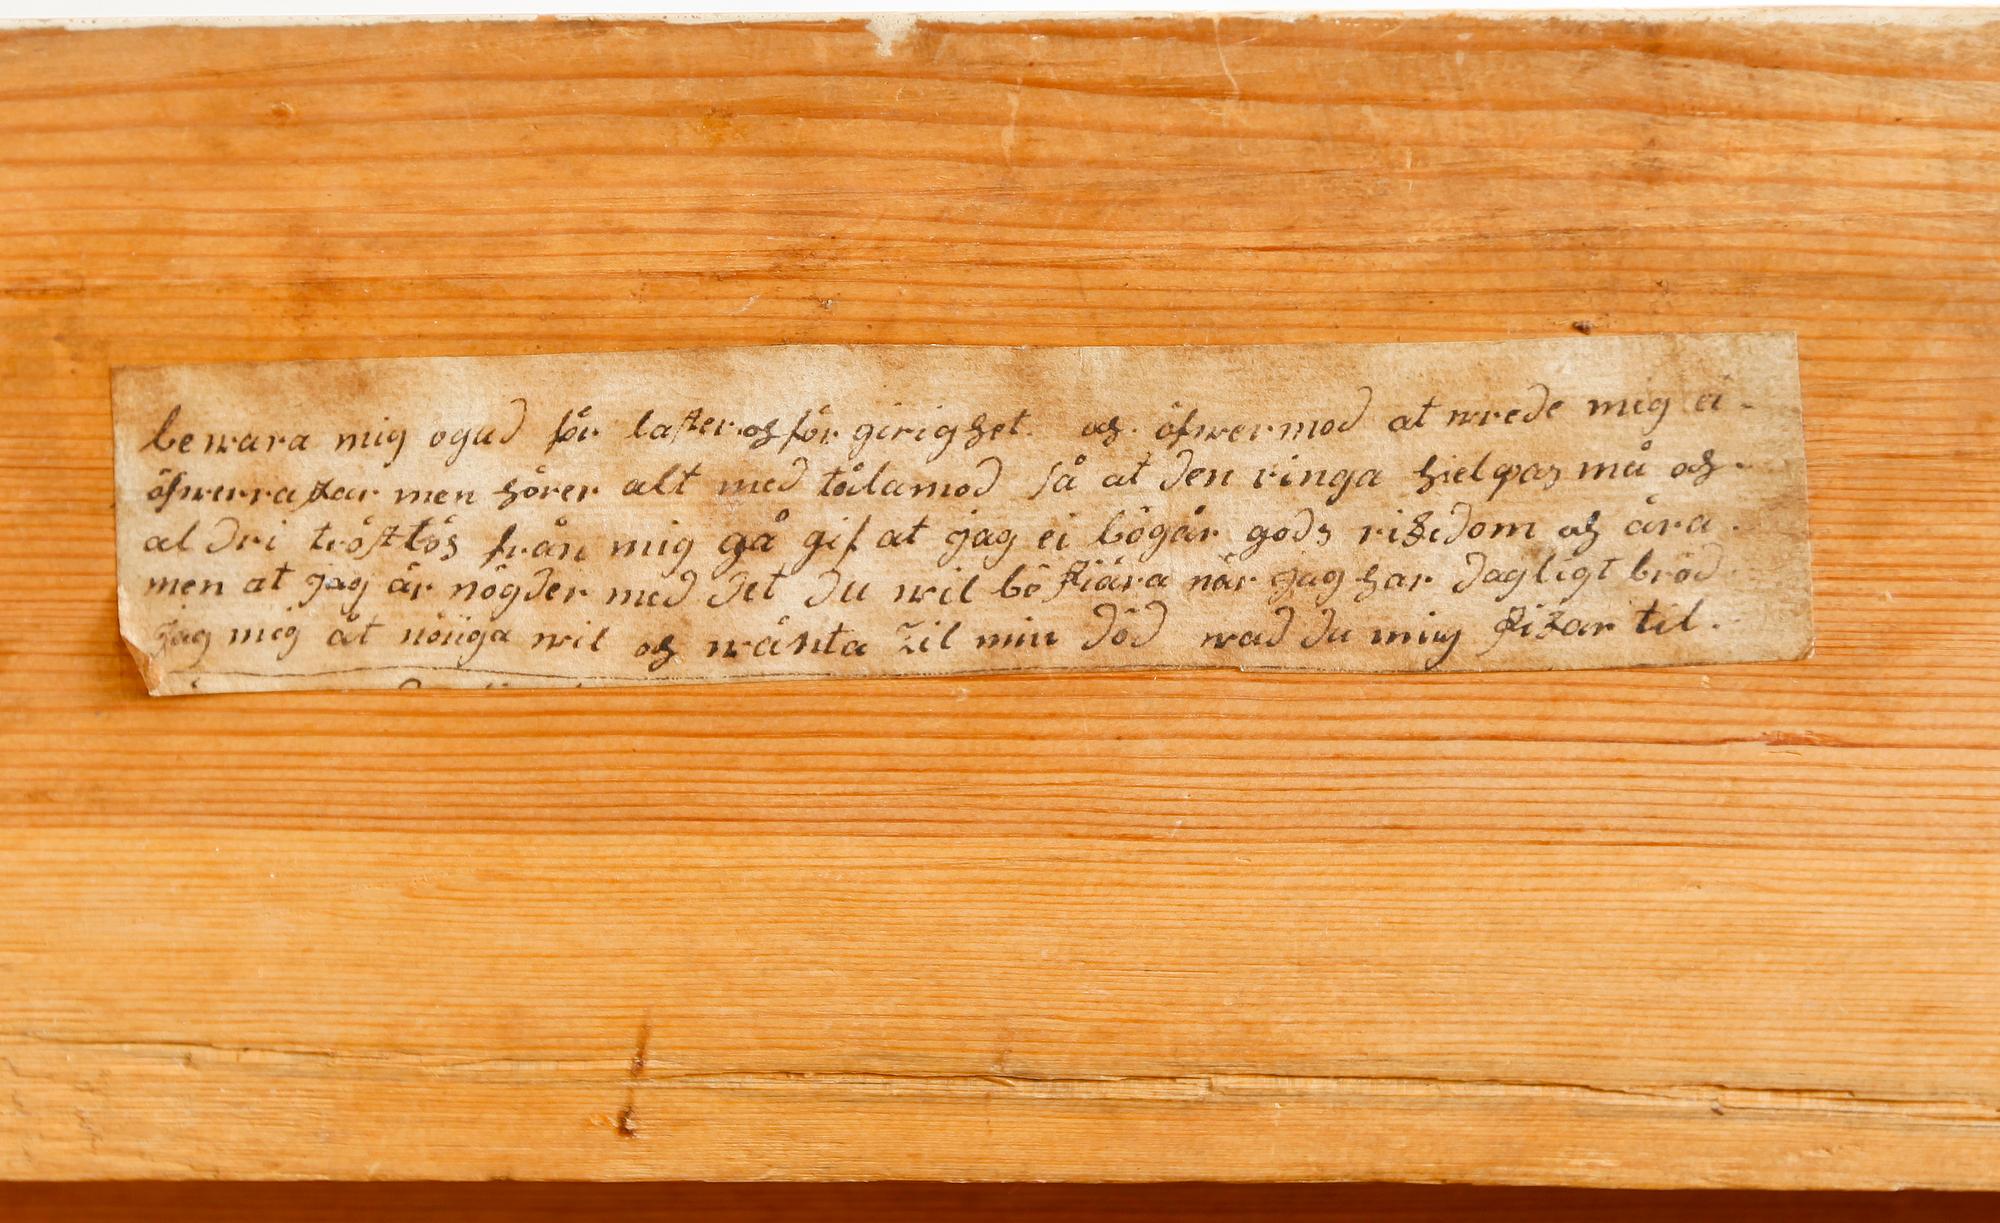 bewara mig ogud för laster och för girighet. och. öfwermod at wrede mig ei -
öfwerraskar men hörer alt med tålamod så at den ringa hielpas må och -
al dri tröstlös från mig gå gif at jag ei bögär gods rikedom och ära.
men at jag är nögder med det du wil bö skiära när jag har dagligt bröd
jag mig åt nöiiga wil och wänta til min död wad du mig skikar til.